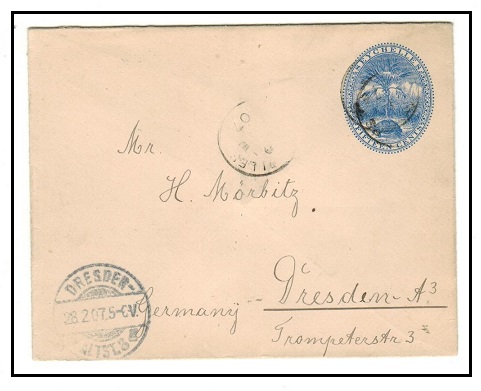 SEYCHELLES
FIFTEEN CENTS
Mr.
H. Morbitz
Germany Dresden-A3
Trompeterstr 3
DRESDEN-
28.2.07.5-6V.
ALTST.